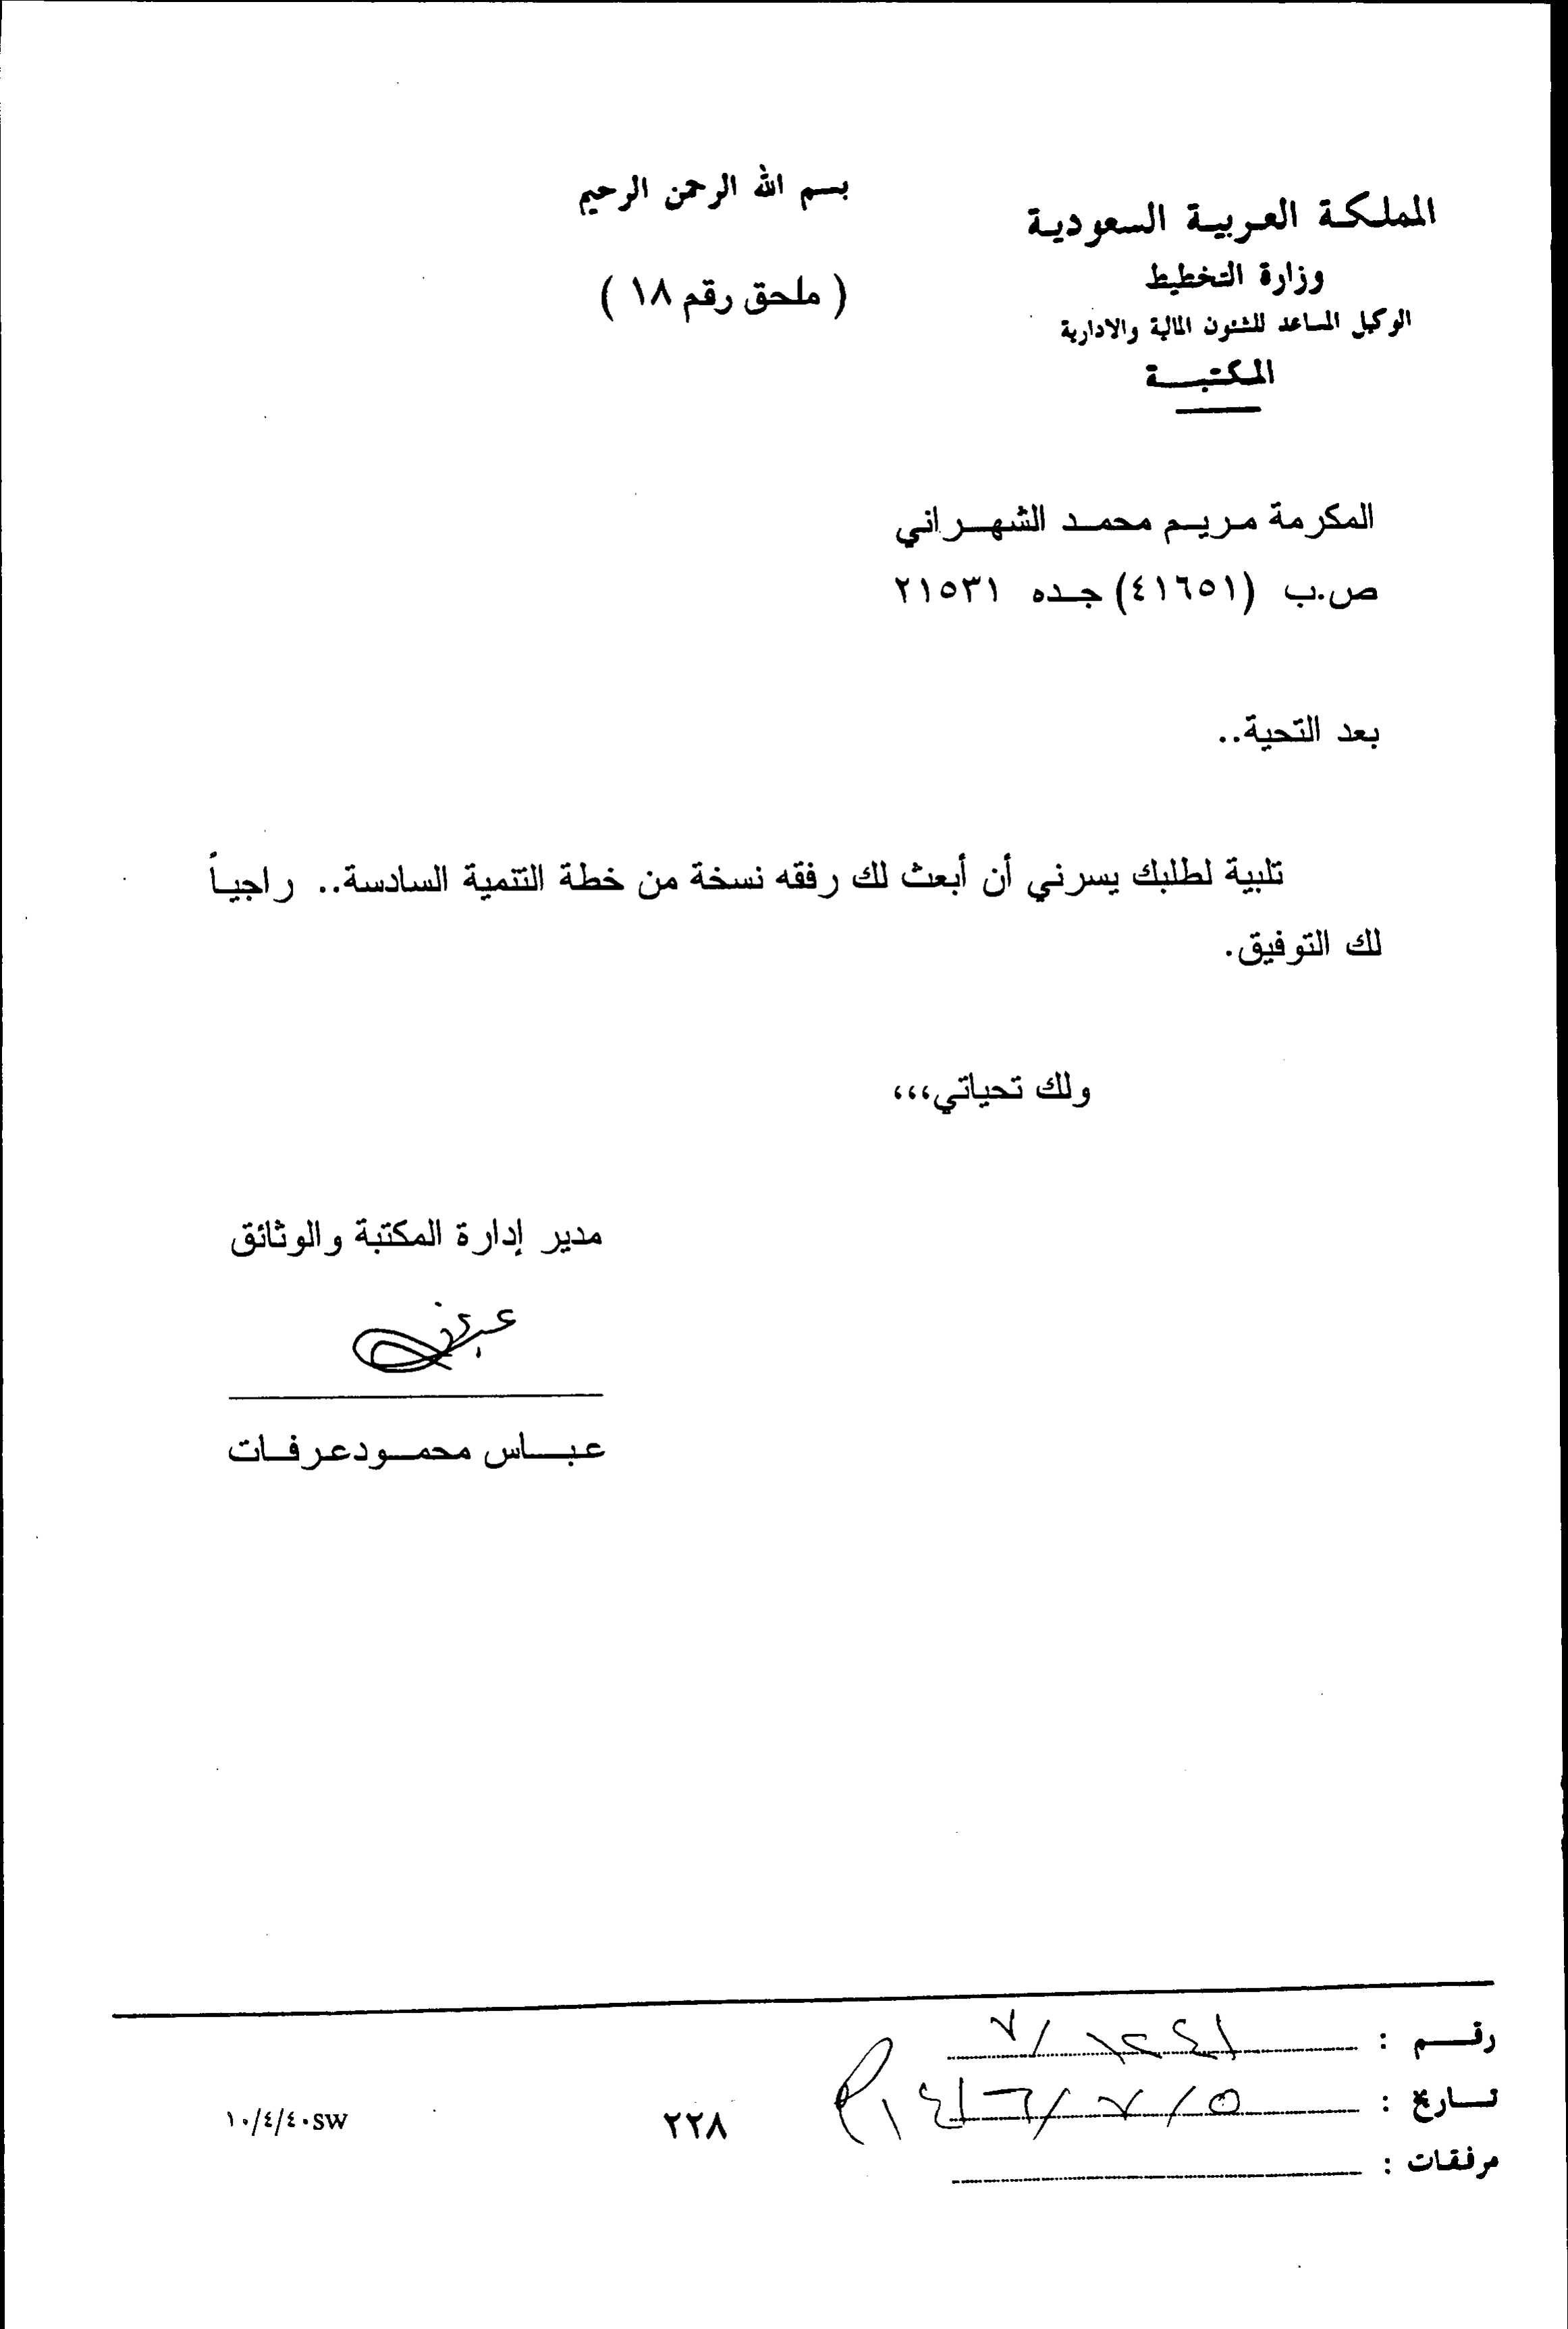 بسم الله الرحمن الرحيم
المملكة العربية السعودية
وزارة التخطيط
الوكيل المساعد للشئون المالية والادارية
المكتبة
( ملحق رقم ١٨ )
المكرمة مريم محمد الشهراني
ص.ب (٤١٦٥١) جده ٢١٥٣١
بعد التحية..
تلبية لطلبك يسرني أن أبعث لك رفقه نسخة من خطة التنمية السادسة.. راجياً
لك التوفيق.
ولك تحياتي،،،
مدير إدارة المكتبة والوثائق
عباس محمودعرفات
رقم :
تاريخ : ٥ / ٧ / ١٤١٦
مرفقات :
٢٢٨
١٠/٤/٤٠SW